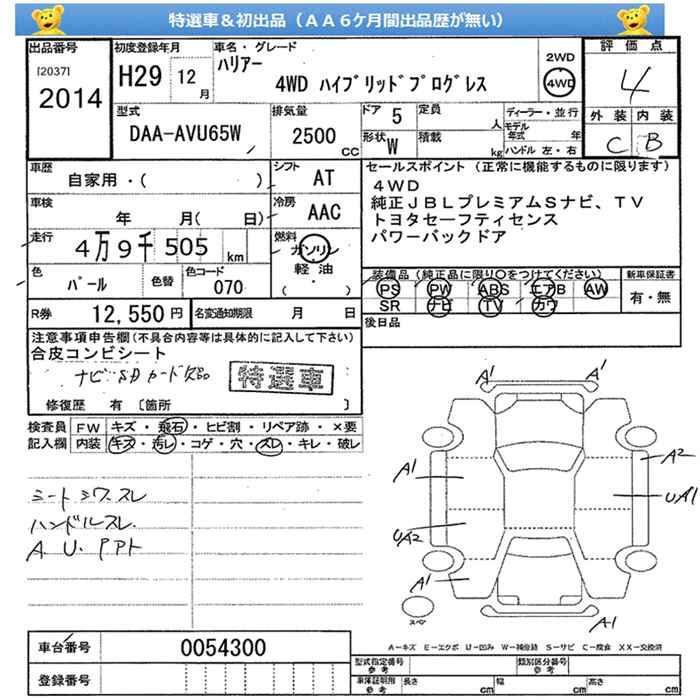 特選車＆初出品（ＡＡ６ケ月間出品歴が無い）
出品番号
[2037]
2014
初度登録年月
H29 12月
車名・グレード
ハリアー
4WD ハイブリッドプログレス
2WD
4WD
評価点
4
外装 内装
C B
型式
DAA-AVU65W
排気量
2500 cc
ドア 5
形状 W
定員 人
積載 kg
ディーラー・並行
モデル年式 年
ハンドル 左・右
車歴
自家用・( )
シフト
AT
車検
年 月(日)
冷房
AAC
走行
4万9千505km
燃料
ガソリン
軽油
( )
色
パール
色替
色コード
070
R券
12,550円
名変通知期限 月 日
セールスポイント（正常に機能するものに限ります）
４WD
純正ＪＢＬプレミアムＳナビ、ＴＶ
トヨタセーフティセンス
パワーバックドア
装備品（純正品に限り○をつけてください）
PS PW ABS エアB AW
SR ナビ TV カワ
新車保証書
有・無
後日品
注意事項申告欄(不具合内容等は具体的に記入して下さい)
合皮コンビシート
ナビSDカード欠品
特選車
修復歴 有〔箇所 〕
検査員記入欄
FW キズ・飛石・ヒビ割・リペア跡・×要
内装 キズ・汚レ・コゲ・穴・スレ・キレ・破レ
シートシワ.スレ
ハンドルスレ.
A U.
A1 A1
A1
A2
UA1
UA2
A1
A1
スペア
A=キズ E=エクボ U=凹み W=補修跡 S=サビ C=腐食 XX=交換済
車台番号
0054300
登録番号
型式指定番号
参考
類別区分番号
参考
車庫証明用
参考
長さ cm
幅 cm
高さ cm